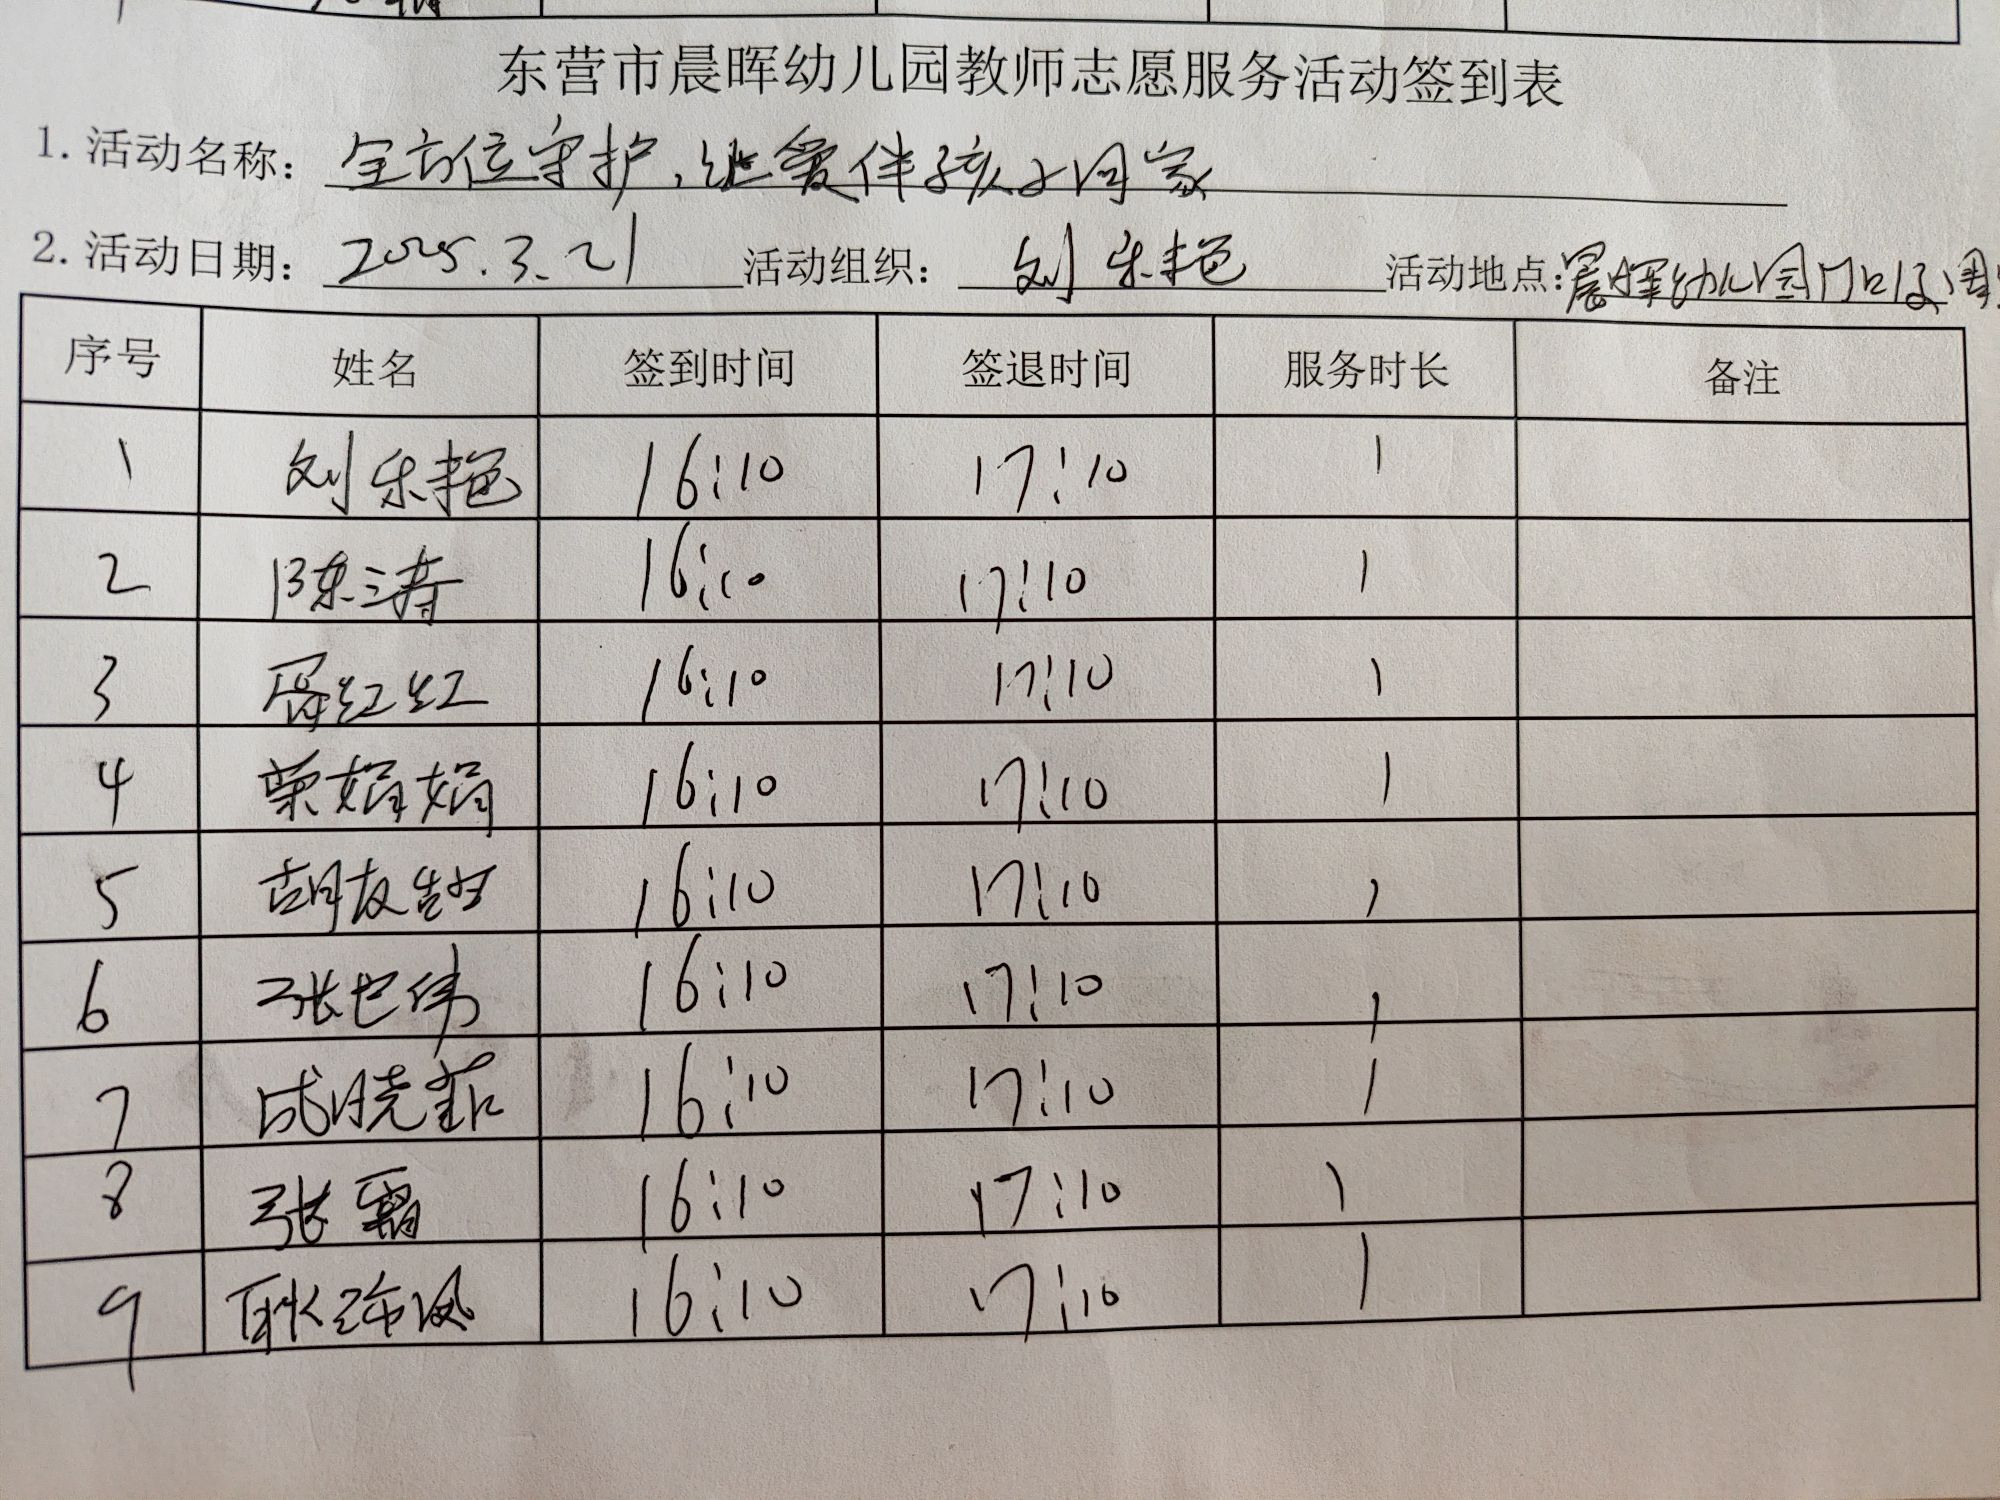 东营市晨晖幼儿园教师志愿服务活动签到表
1. 活动名称：全方位守护，让爱伴孩子回家
2. 活动日期：2025.3.21 活动组织：刘乐艳 活动地点：晨晖幼儿园门口及周
序号 姓名 签到时间 签退时间 服务时长 备注
1 刘乐艳 16:10 17:10 1
2 陈涛 16:10 17:10 1
3 红红 16:10 17:10 1
4 荣娟娟 16:10 17:10 1
5 胡友 16:10 17:10 1
6 张世伟 16:10 17:10 1
7 成晓菲 16:10 17:10 1
8 张霜 16:10 17:10 1
9 耿凤 16:10 17:10 1